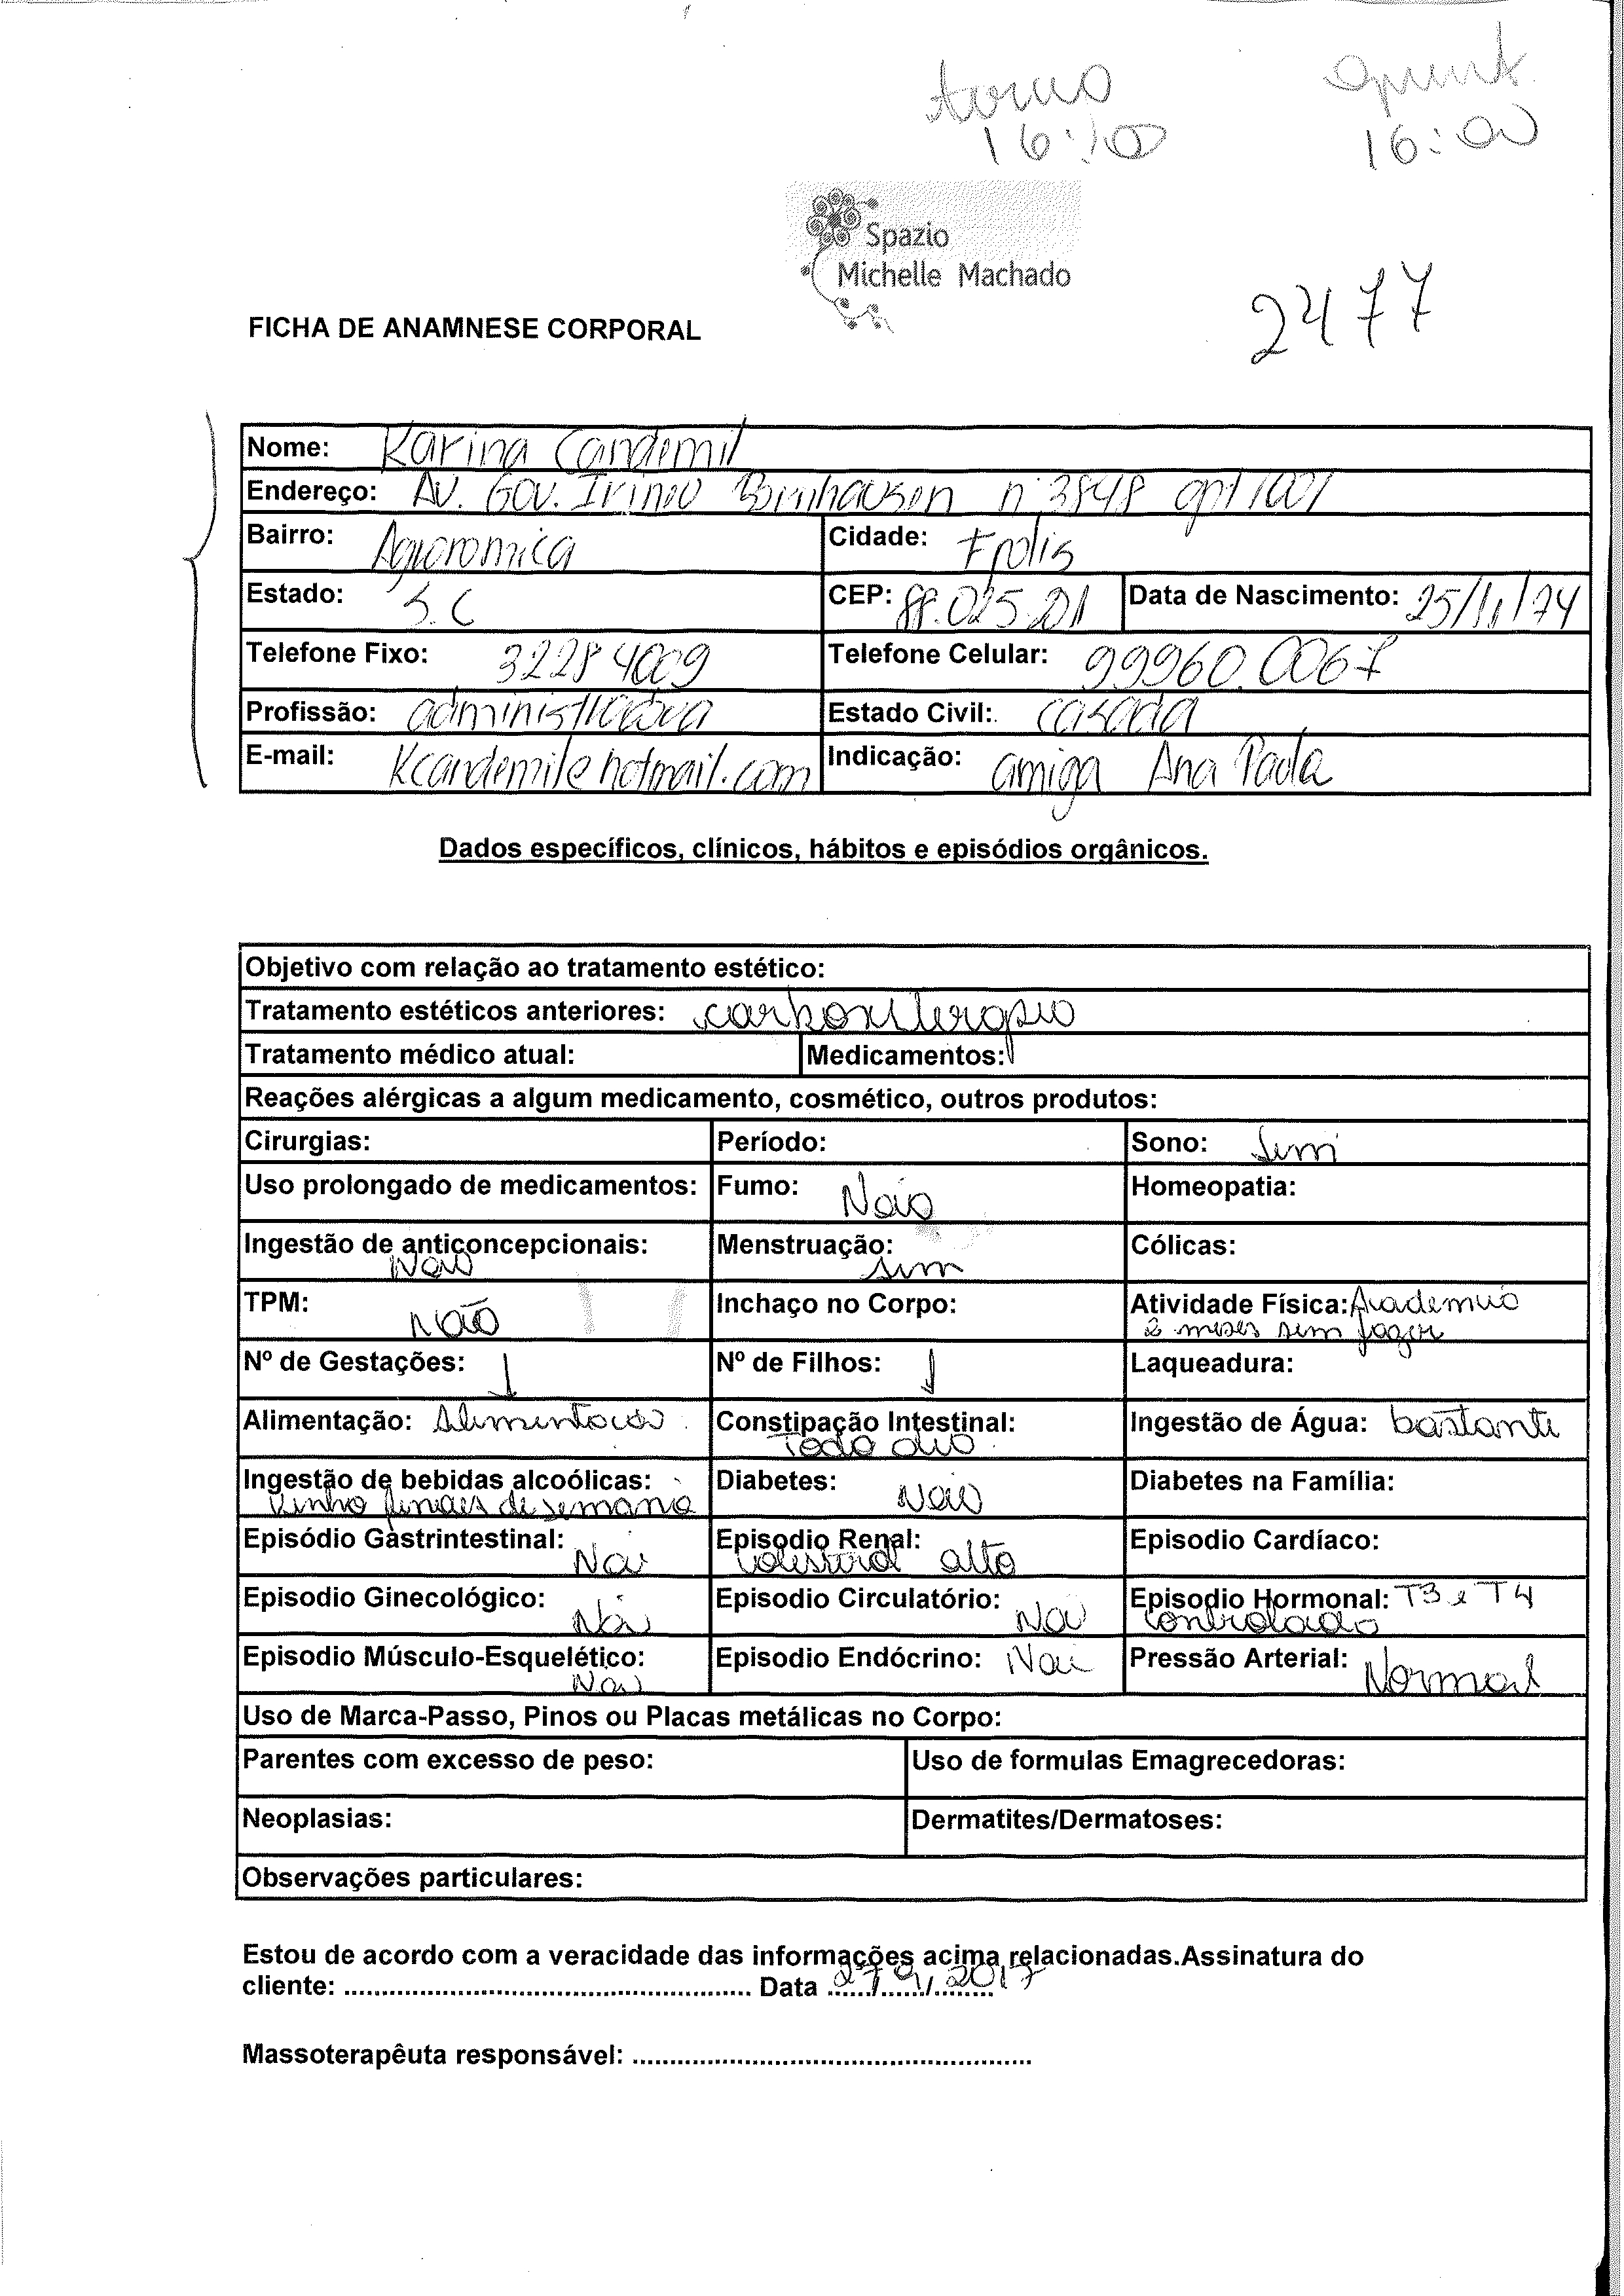 16:00 16:00
Spazio
Michelle Machado
2477
FICHA DE ANAMNESE CORPORAL
Nome: Karina Candemil
Endereço: Av. Gov. Irineu Bornhausen n° 3848 apt 1001
Bairro: Agronomica Cidade: Fpolis
Estado: S.C CEP: Data de Nascimento: 25/11/74
Telefone Fixo: 3228 4009 Telefone Celular: 99960.0067
Profissão: administradora Estado Civil: casada
E-mail: Kcandemil@hotmail.com Indicação: amiga Ana Paula
Dados específicos, clínicos, hábitos e episódios orgânicos.
Objetivo com relação ao tratamento estético:
Tratamento estéticos anteriores: carboxiterapia
Tratamento médico atual: Medicamentos:
Reações alérgicas a algum medicamento, cosmético, outros produtos:
Cirurgias: Período: Sono: Sim
Uso prolongado de medicamentos: Fumo: Não Homeopatia:
Ingestão de anticoncepcionais: Não Menstruação: sim Cólicas:
TPM: Não Inchaço no Corpo: Atividade Física: Academia
2 meses sem fazer
Nº de Gestações: 1 Nº de Filhos: 1 Laqueadura:
Alimentação: Alimentação Constipação Intestinal: Todo dia Ingestão de Água: bastante
Ingestão de bebidas alcoólicas: Vinho finais de semana Diabetes: Não Diabetes na Família:
Episódio Gastrintestinal: Não Episodio Renal: colesterol alto Episodio Cardíaco:
Episodio Ginecológico: Não Episodio Circulatório: Não Episodio Hormonal: T3 e T4
controlado
Episodio Músculo-Esquelético: Não Episodio Endócrino: Não Pressão Arterial: Normal
Uso de Marca-Passo, Pinos ou Placas metálicas no Corpo:
Parentes com excesso de peso: Uso de formulas Emagrecedoras:
Neoplasias: Dermatites/Dermatoses:
Observações particulares:
Estou de acordo com a veracidade das informações acima relacionadas.Assinatura do
cliente: ...................................................... Data 27/9/2017
Massoterapêuta responsável: .....................................................